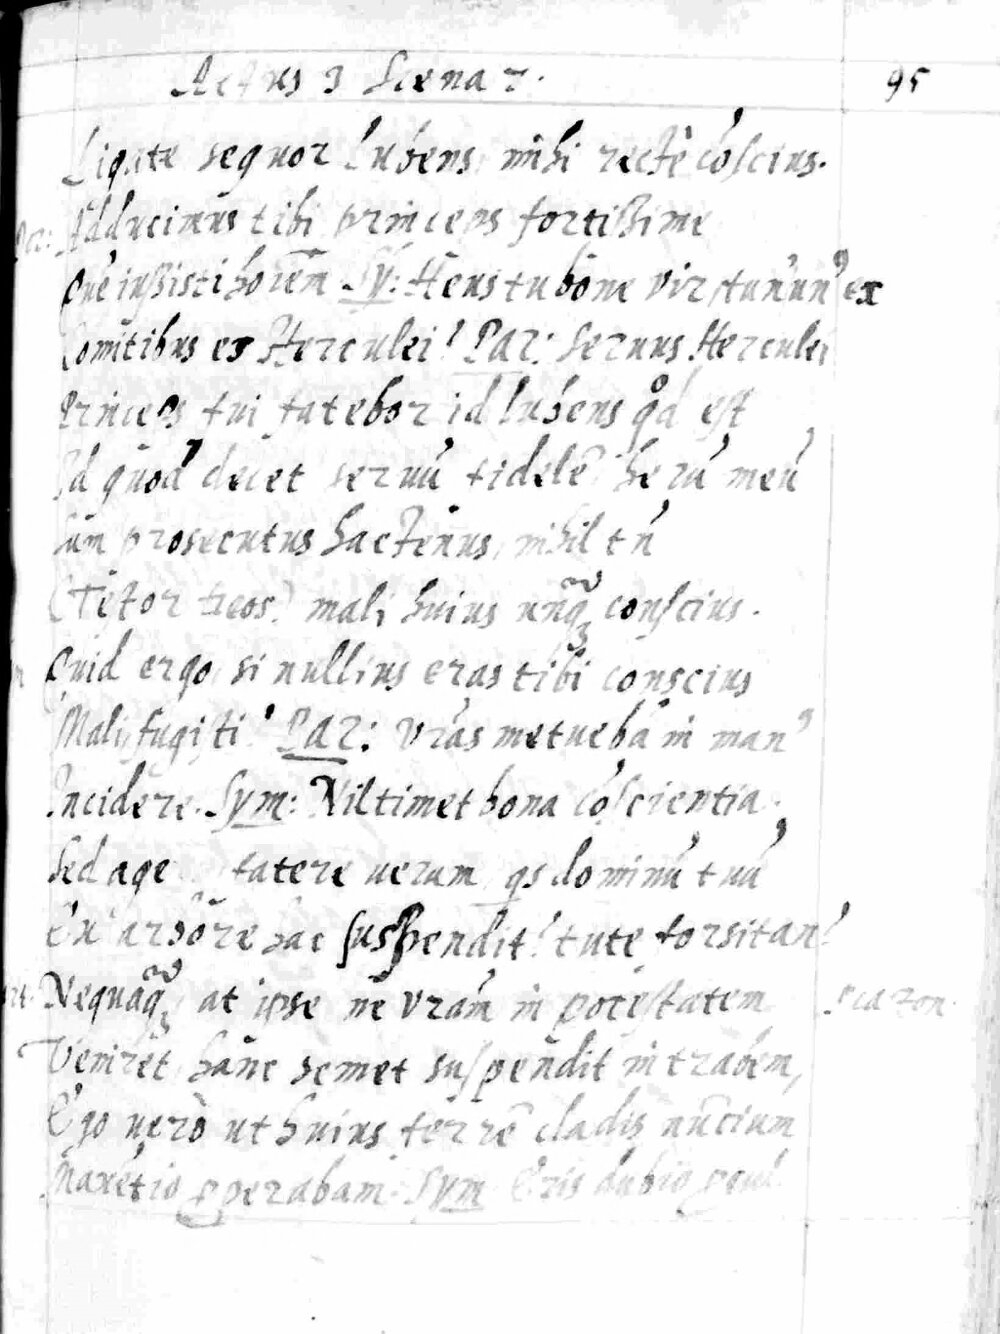 Actus 3 Scena 7.
95
Ligate sequor lubens, mihi rectè cōscius.
Adducimus tibi princeps fortissime
Quē iussisti horiem Sy: Heus tu bone vir, tun' un' ex
Comitibus es Herculei? Par: Seruus Herculei
Princeps fui fatebor id lubens qd est
Id quod decet seruū fidelē, herū meū
Sum prosecutus hactenus, nihil tn̄
(Testor deos) mali huius unq̄ conscius.
Quid ergo, si nullius eras tibi conscius
Mali, fugisti? Par: Vrās metuebā in man9
Incidere. Sym: Nil timet bona cōscientia.
Sed age fatere uerum, qs dominū tuū
Ex arbore hac suspendit? tute forsitan?
Nequaq̄, at ipse ne vrām in potestatem
Veniret, hanc semet suspendit in trabem,
Ego uerò ut huius ferrē cladis nūcium
Maxētio pperabam. Sym Eris dubio